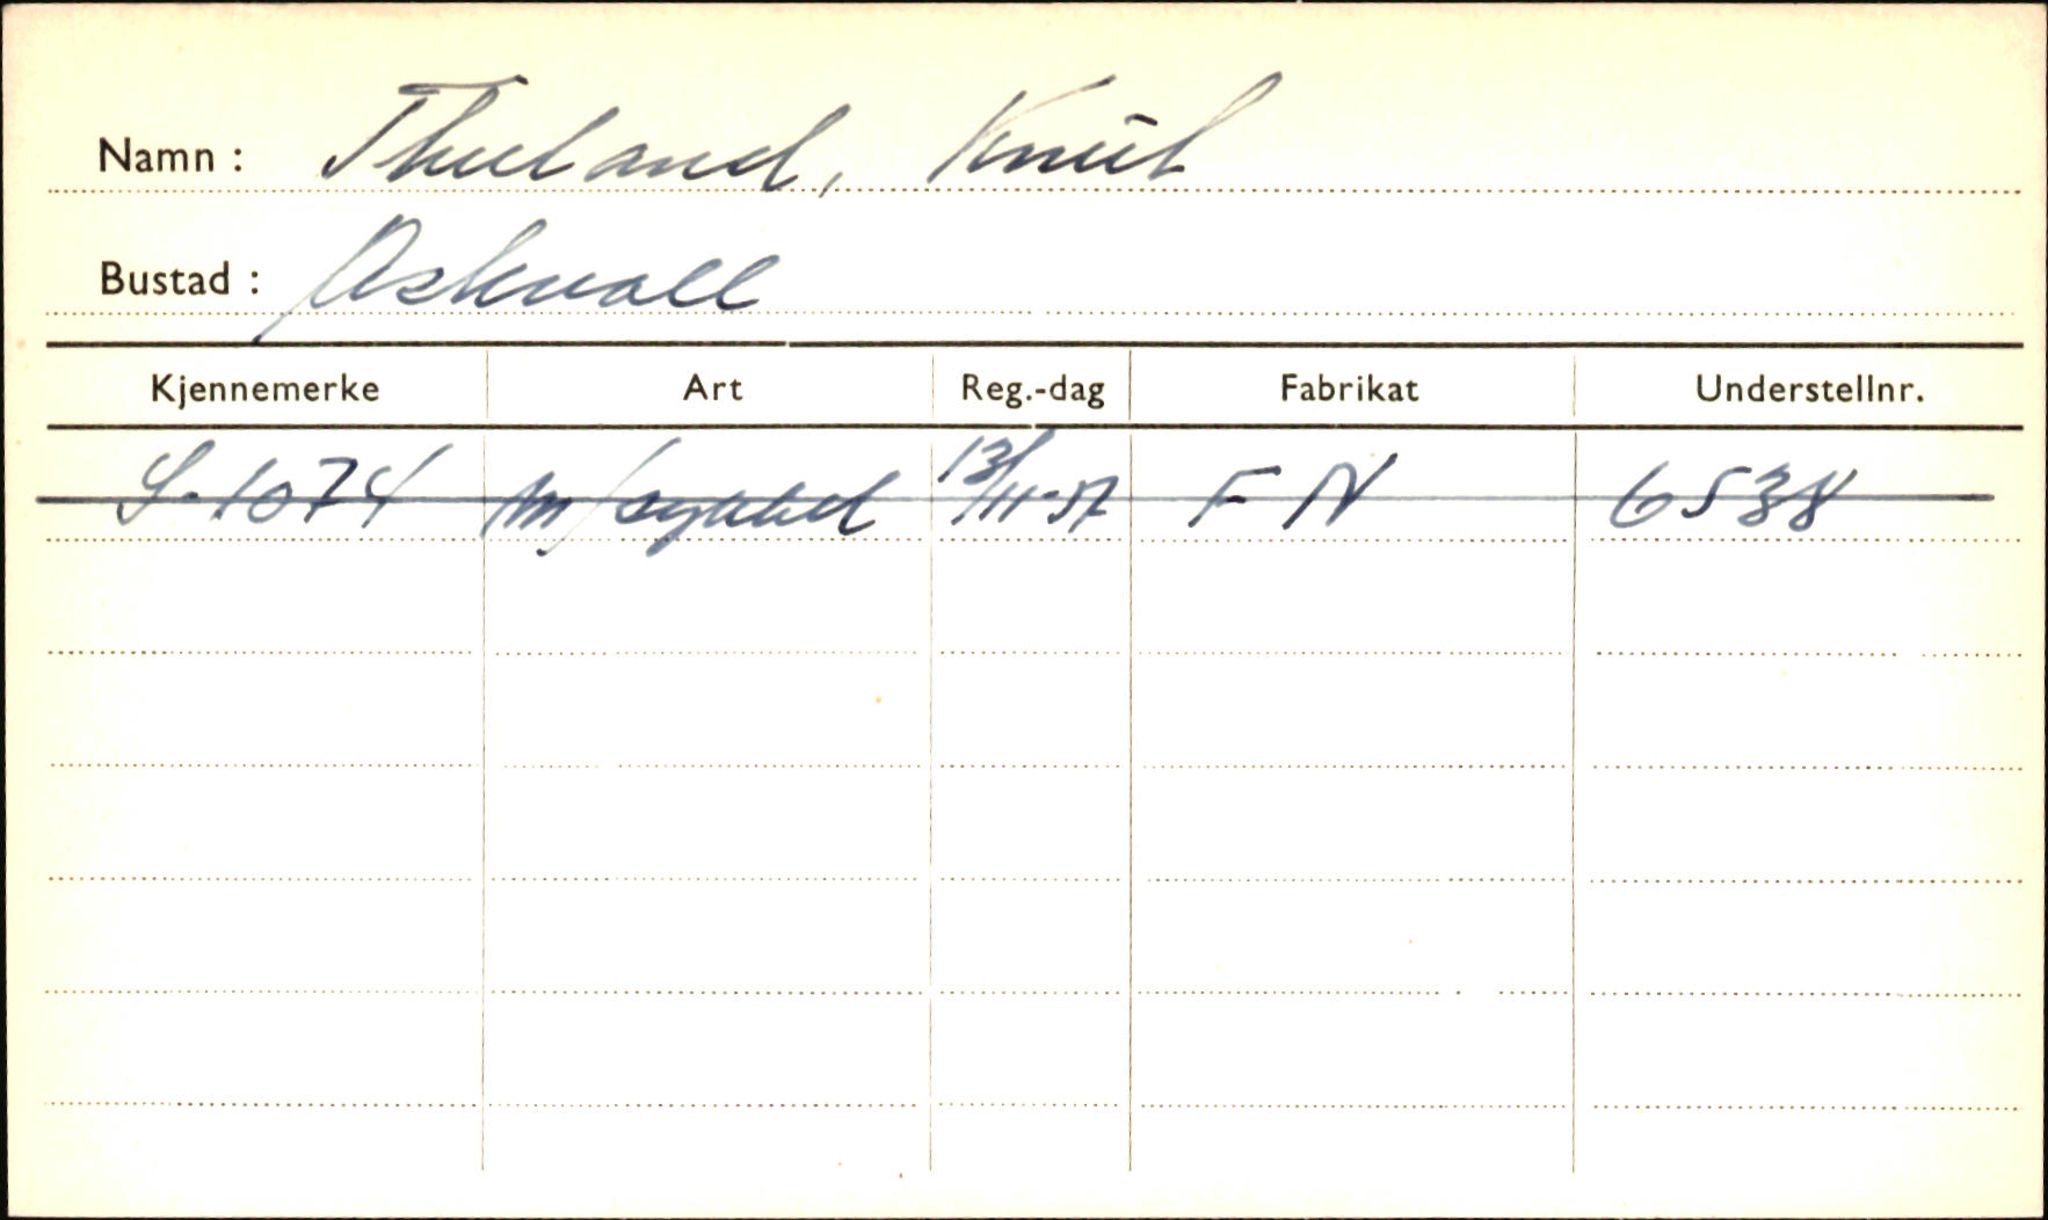 Namn : Thuland, Knut
Bustad : Askvoll
Kjennemerke Art Reg.-dag Fabrikat Understellnr.
S-1074 m/sykkel 13/11-57 FN 6538